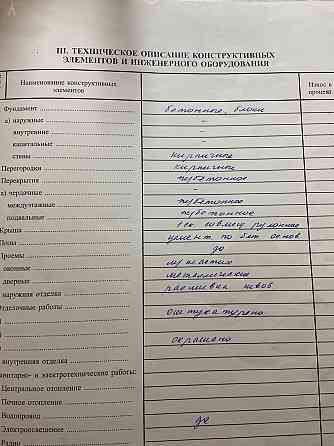 III. ТЕХНИЧЕСКОЕ ОПИСАНИЕ КОНСТРУКТИВНЫХ
ЭЛЕМЕНТОВ И ИНЖЕНЕРНОГО ОБОРУДОВАНИЯ
Наименование конструктивных
элементов
Износ в
процент
Фундамент бетонные, блоки
а) наружные -
внутренние -
капитальные -
стены кирпичные
Перегородки кирпичные
Перекрытия ж/бетонное
а) чердачные -
междуэтажные ж/бетонное
подвальные ж/бетонное
Крыша совмещ рулонная
Полы цемент по бет основ
Проемы до
оконные
дверные металлические
наружная отделка расшивка швов
Отделочные работы оштукатурено
окрашено
внутренняя отделка
санитарно- и электротехнические работы:
Центральное отопление
Печное отопление
Водопровод
Электроосвещение да
Радио